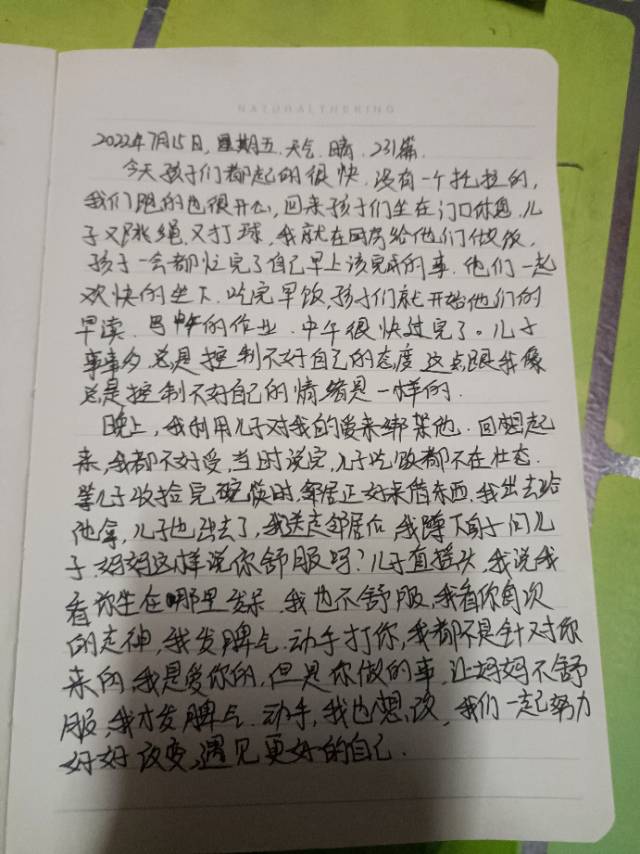 NATURALTHERING
2022年7月15日,星期五.天气.晴.231篇.
今天孩子们都起的很快.没有一个拖拉的,
我们跑的也很开心,回来孩子们坐在门口休息.儿
子又跳绳.又打球.我就在厨房给他们做饭.
孩子一会都忙完了自己早上该完成的事.他们一起
欢快的坐下.吃完早饭,孩子们就开始他们的
早读.写的作业.中午很快过完了。儿子
事事多.总是控制不好自己的态度.这点跟我像
总是控制不好自己的情绪是一样的.
晚上,我利用儿子对我的爱来绑架他.回想起
来,我都不好受,当时说完,儿子吃饭都不在状态.
等儿子收捡完碗筷时,邻居正好来借东西.我出去给
他拿,儿子也出去了,我送走邻居后.我蹲下身子问儿
子.妈妈这样说你舒服吗?儿子直摇头.我说我
看你坐在哪里发呆.我也不舒服,我看你每次
的走神,我发脾气.动手打你,我都不是针对你
来的,我是爱你的,但是你做的事.让妈妈不舒
服,我才发脾气.动手,我也想改.我们一起努力
好好改变,遇见更好的自己.